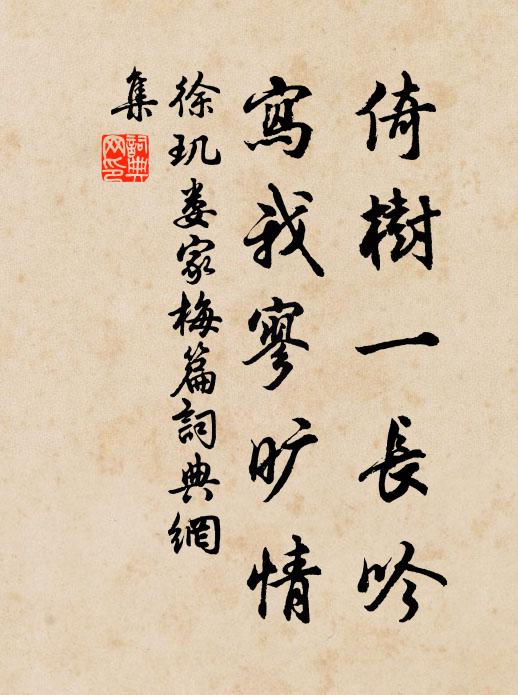 倚樹一長吟
寫我寥旷情
徐玑娄家梅篇詞典網
集
詞典
网印